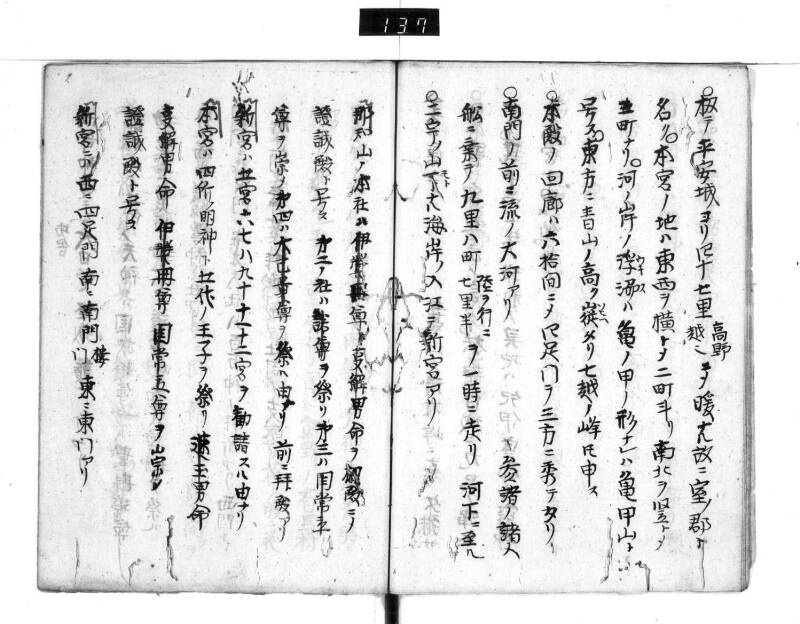 137
○扨テ平安城ヨリ四十七里高野越ニテ暖尤故ニ室ノ郡ト
名リ○本宮ノ地ハ東西ヲ横トメ二町斗リ南北ヲ竪トメ
五町ナリ○河ノ岸ノ浮洲ハ亀ノ甲ノ形ナレハ亀甲山ト
号ス○東方ニ青山ノ高ク嶷タリ七越ノ峰ト申ス
○本殿ノ回廊ハ六拾間ニメ四足門ヲ三方ニ秀テタリ
○南門ノ前ニ流ノ大河アリ 参詣ノ諸人
舩ニ乗テ九里八町陸ヲ行ニ七里半ヲ一時ニ走リ河下ニ至ル
○三宇ノ山下モト海岸ノ入江ヲ新宮アリ
那智山ノ本社ハ伊弉冊尊ト事解男命ヲ相殿ニメ
證誠殿ト号ス 第二ノ社ハ諾尊ヲ祭リ第三ハ国常立
尊ヲ崇メ第四ハ大己貴尊ヲ祭ル由ナリ前ニ拜殿アリ
新宮ハ五宮六七八九十十一十二宮ヲ勧請スル由ナリ
本宮ハ四所ノ明神ト五代ノ王子ヲ祭リ速玉男命
事解男命 伊弉冊尊 国常立尊ヲ崇メ
證誠殿ト号ス
新宮ニハ西ニ四足門南ニ南門楼門東ニ東門アリ